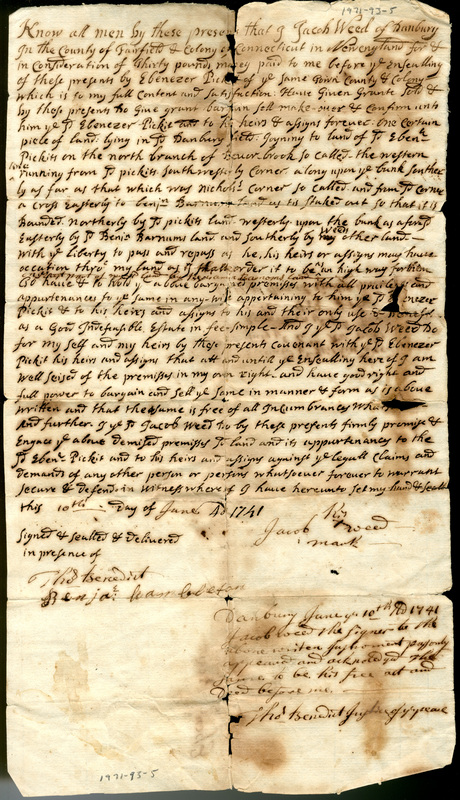 1971-93-5
Know all men by these presents that I Jacob Weed of Danbury
In the County of Fairfield & Colony of Connecticut in Newengland for &
in Consideration of Thirty pounds money paid to me before ye Ensealling
of these presents by Ebenezer Pickit of ye Same Town County & Colony
which is to my full Content and Satisfaction: Have Given Granted Sold &
by these presents do Give grant bargain sell make-over & Confirm unto
him ye Sd Ebenezer Pickit his heirs & assigns forever: One Certain
piece of land: lying in Sd Danbury Joyning to land of Sd Ebenr
Pickits on the north branch of Bever brook so called. the western
running from Sd pickits Southwesterly Corner along upon ye bank Souther
ly as far as that which was Corner so called and from Sd Corner
a cross Easterly to Benja Barnums land as is staked out so that it is
Bounded. Northerly by Sd pickits land westerly upon the bank as aforesd
Easterly by Sd Benja Barnums land and Southerly by my other land.—
With ye liberty to pass and repass as he, his heirs or assigns may have
occation thro my land as I shall order it to be an high way
To have & to hold ye above bargained premises with all priviliges and
appurtenances to ye Same in any wise appertaining to him ye Sd Ebenezer
Pickit & to his heirs and assigns to his and their only use &
as a Good Indefeasible Estate in fee-simple - And I ye Sd Jacob Weed Do
for my Self and my heirs by these presents covenant with ye Sd Ebenezer
Pickit his heirs and assigns that att and untill ye Ensealling hereof I am
Well Seised of the premisses in my own right. and have good right and
full power to bargain and Sell ye Same in manner & form as is above
written and that the same is free of all Incumbrances
And further. I ye Sd Jacob Weed do by these presents firmly promise &
Engage ye above Demised premisses Sd land and its appurtenances to the
Sd Ebenr Pickit and to his heirs and assigns against ye legall Claims and
demands of any other person or persons whatsoever forever to warrant
Secure & Defend. in Witness whereof I have hereunto set my hand & seall
this 10th Day of June AD 1741
his
Jacob Weed
mark
Signed & sealled & Delivered
in presence of
Thos Benedict
Benja:
Danbury June ye 10th AD 1741
Jacob Weed the Signer to the
above written Instrument personly
appeared and acknoledgd the
Same to be his free act and
Deed before me.
Thos Benedict Justice of ye peace
1971-95-5